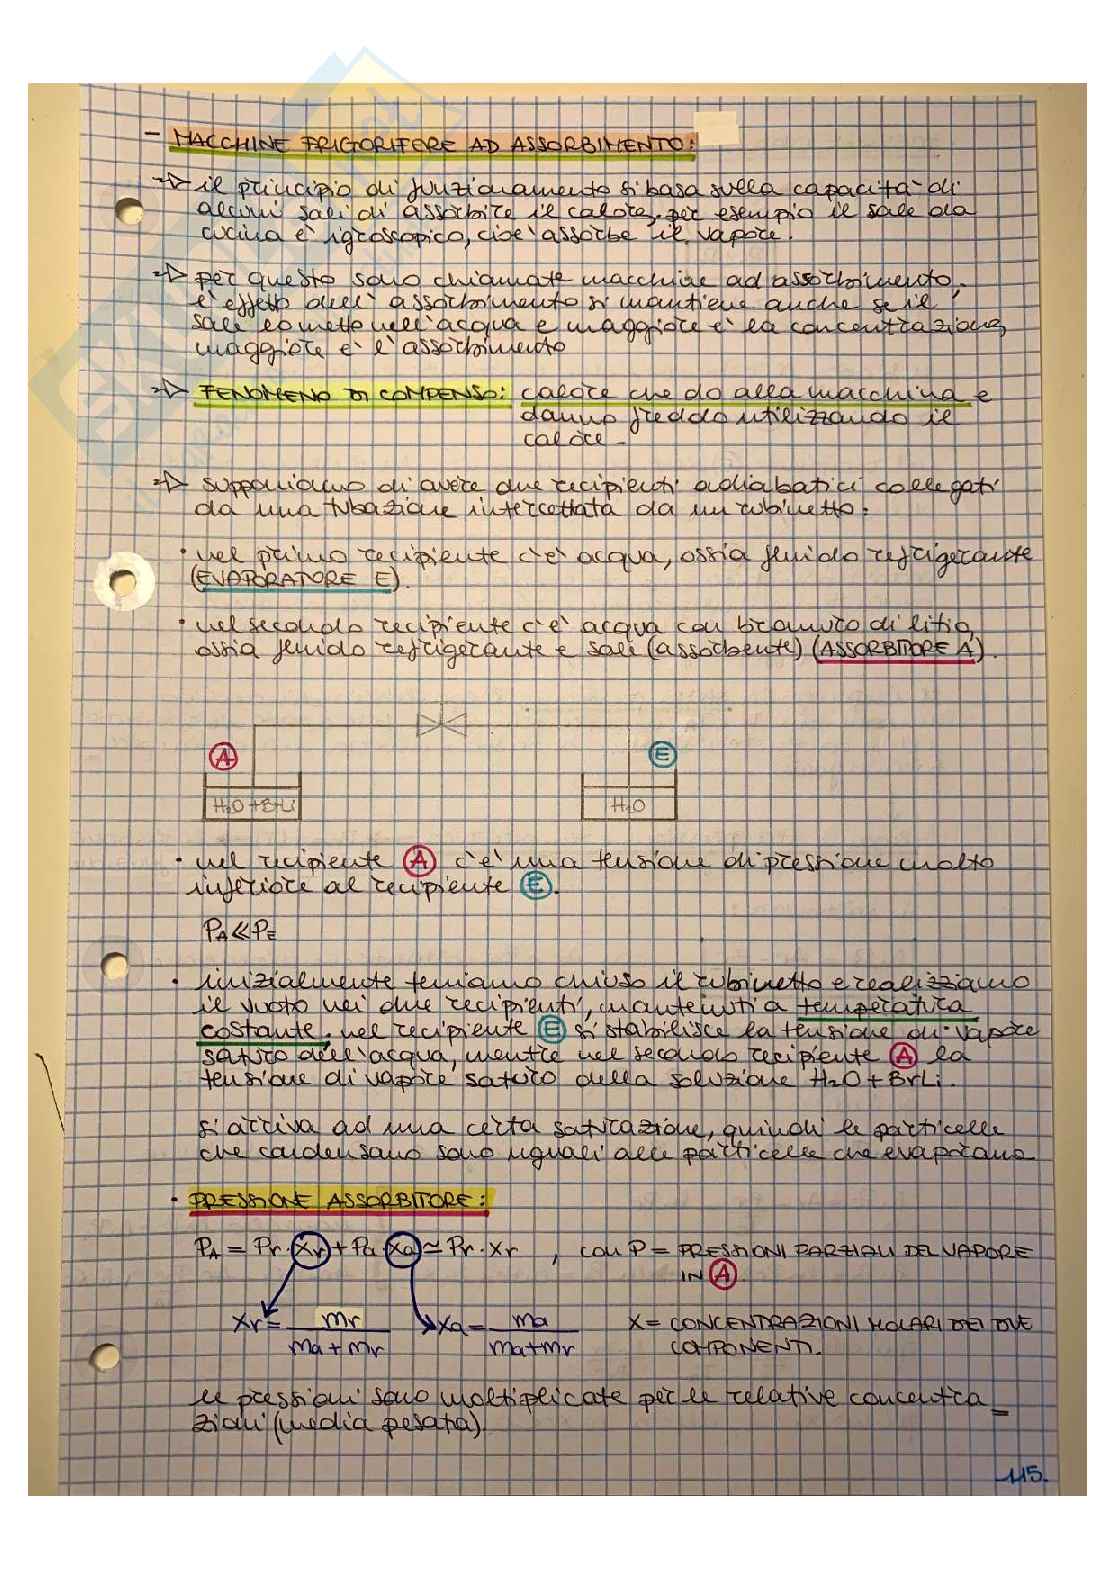 - MACCHINE FRIGORIFERE AD ASSORBIMENTO:
→ il principio di funzionamento si basa sulla capacità di
alcuni sali di assorbire il calore, per esempio il sale da
cucina è igroscopico, cioè assorbe il vapore.
→ per questo sono chiamate macchine ad assorbimento,
l'effetto dell'assorbimento si mantiene anche se il
sale lo metto nell'acqua e maggiore è la concentrazione,
maggiore è l'assorbimento
→ FENOMENO DI COMPENSO: calore che do alla macchina e
danno freddo utilizzando il
calore.
→ supponiamo di avere due recipienti adiabatici collegati
da una tubazione intercettata da un rubinetto:
• nel primo recipiente c'è acqua, ossia fluido refrigerante
(EVAPORATORE E).
• nel secondo recipiente c'è acqua con bromuro di litio,
ossia fluido refrigerante e sale (assorbente) (ASSORBITORE A).
A E
H₂O + BrLi H₂O
• nel recipiente A c'è una tensione di pressione molto
inferiore al recipiente E.
PA ≪ PE
• inizialmente teniamo chiuso il rubinetto e realizziamo
il vuoto nei due recipienti, mantenuti a temperatura
costante, nel recipiente E si stabilisce la tensione di vapore
saturo dell'acqua, mentre nel secondo recipiente A la
tensione di vapore saturo della soluzione H₂O + BrLi.
si arriva ad una certa saturazione, quindi le particelle
che condensano sono uguali alle particelle che evaporano
• PRESSIONE ASSORBITORE:
PA = Pr · Xr + Pa · Xa ≃ Pr · Xr , con P = PRESSIONI PARZIALI DEL VAPORE
IN A.
Xr = mr / ma + mr Xa = ma / ma + mr X = CONCENTRAZIONI MOLARI DEI DUE
COMPONENTI.
le pressioni sono moltiplicate per le relative concentra_
zioni (media pesata)
115.